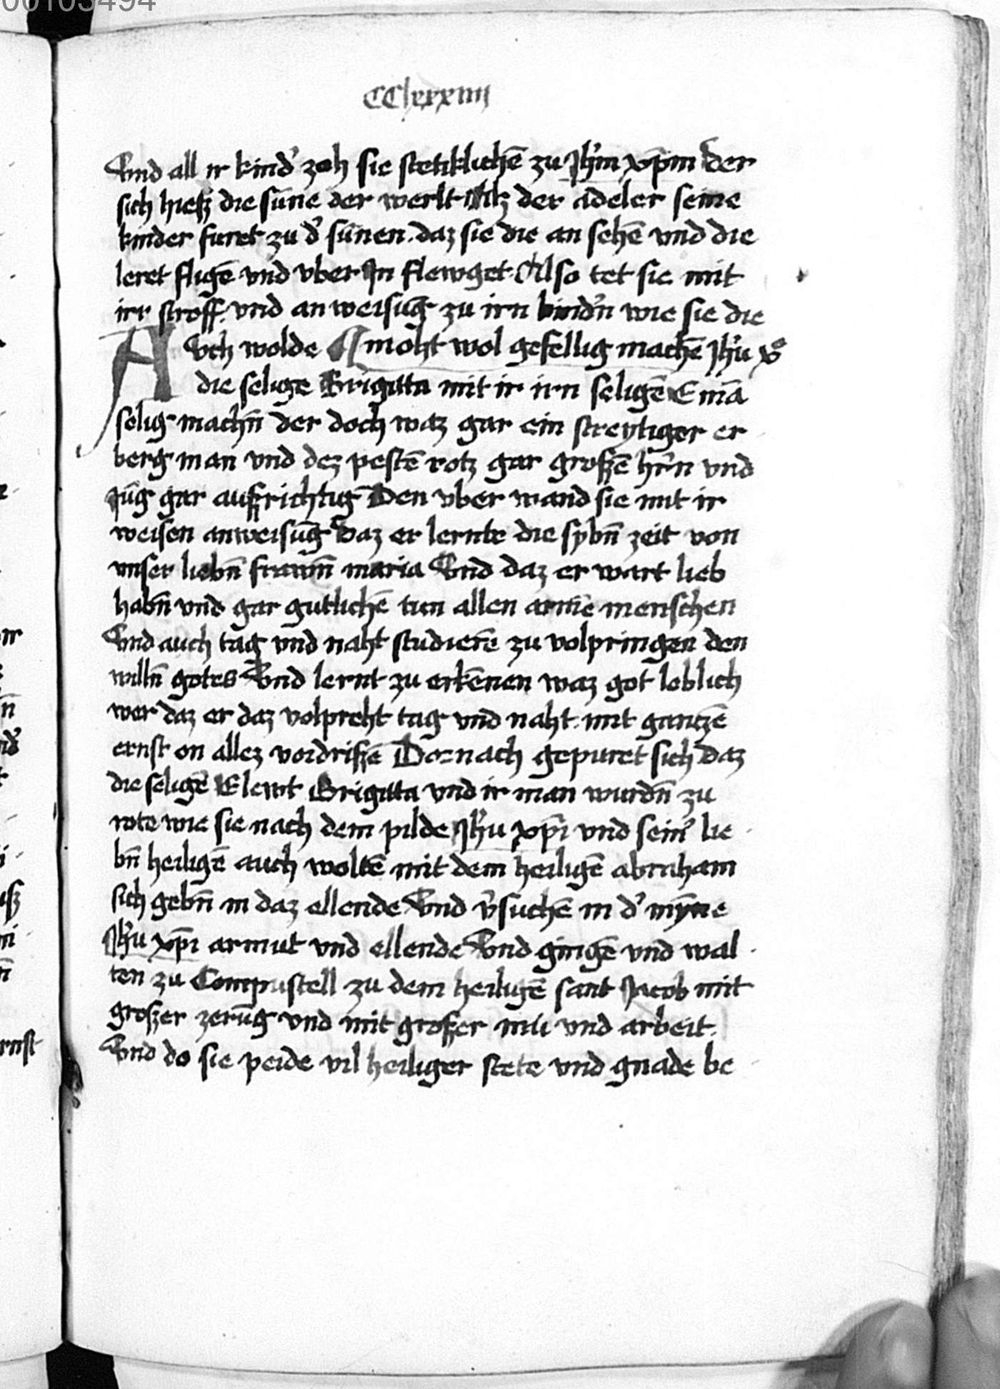 00103494
CClxxxiiij
Vnd all ir kind' zoh sie stetiklichē zu jh̄m xp̄m der
sich hiesz die sūne der werlt Alz der adeler seine
kinder furet zu d' sūnen. daz sie die an sehē vnd die
leret fligē vnd vber jn flewget Also tet sie mit
irr stroff. vnd an weisūg zu irn kindn̄ wie sie die
AVch wolde moht wol gefellig machē jh̄u
die selige Brigitta mit ir irn seligē E mā
selig machn̄ der doch waz gar ein streytiger er
berg man vnd dez pestē rotz gar groszē hr̄n vnd
jūg gar aufrichtig Den vber wand sie mit ir
weisen anweisūg daz er lernte die sybn̄ zeit von
vnser liebn̄ frawn̄ maria Vnd daz er wart lieb
habn̄ vnd gar gutlichē tun allen armē menschen
Vnd auch tag vnd naht studierē zu volpringen den
willn̄ gotes Vnd lernt zu erkēnen waz got loblich
wer daz er daz volpreht tag vnd naht mit gantzē
ernst on allez vordriszē Dornach gepuret sich daz
die seligē Elewt Brigitta vnd ir man wurdn̄ zu
rote wie sie nach dem pilde jh̄u xp̄i vnd sein' lie
bn̄ heiligē auch woltē mit dem heiligē abraham
sich gebn̄ in daz ellende Vnd v'suchē in d' mȳne
jh̄u xp̄i armut vnd ellende Vnd gingē vnd wal
ten zu Compustell zu dem heiligē sant Jacob mit
groszer zerūg vnd mit groser mü vnd arbeit.
Vnd do sie peide vil heiliger stete vnd gnade be